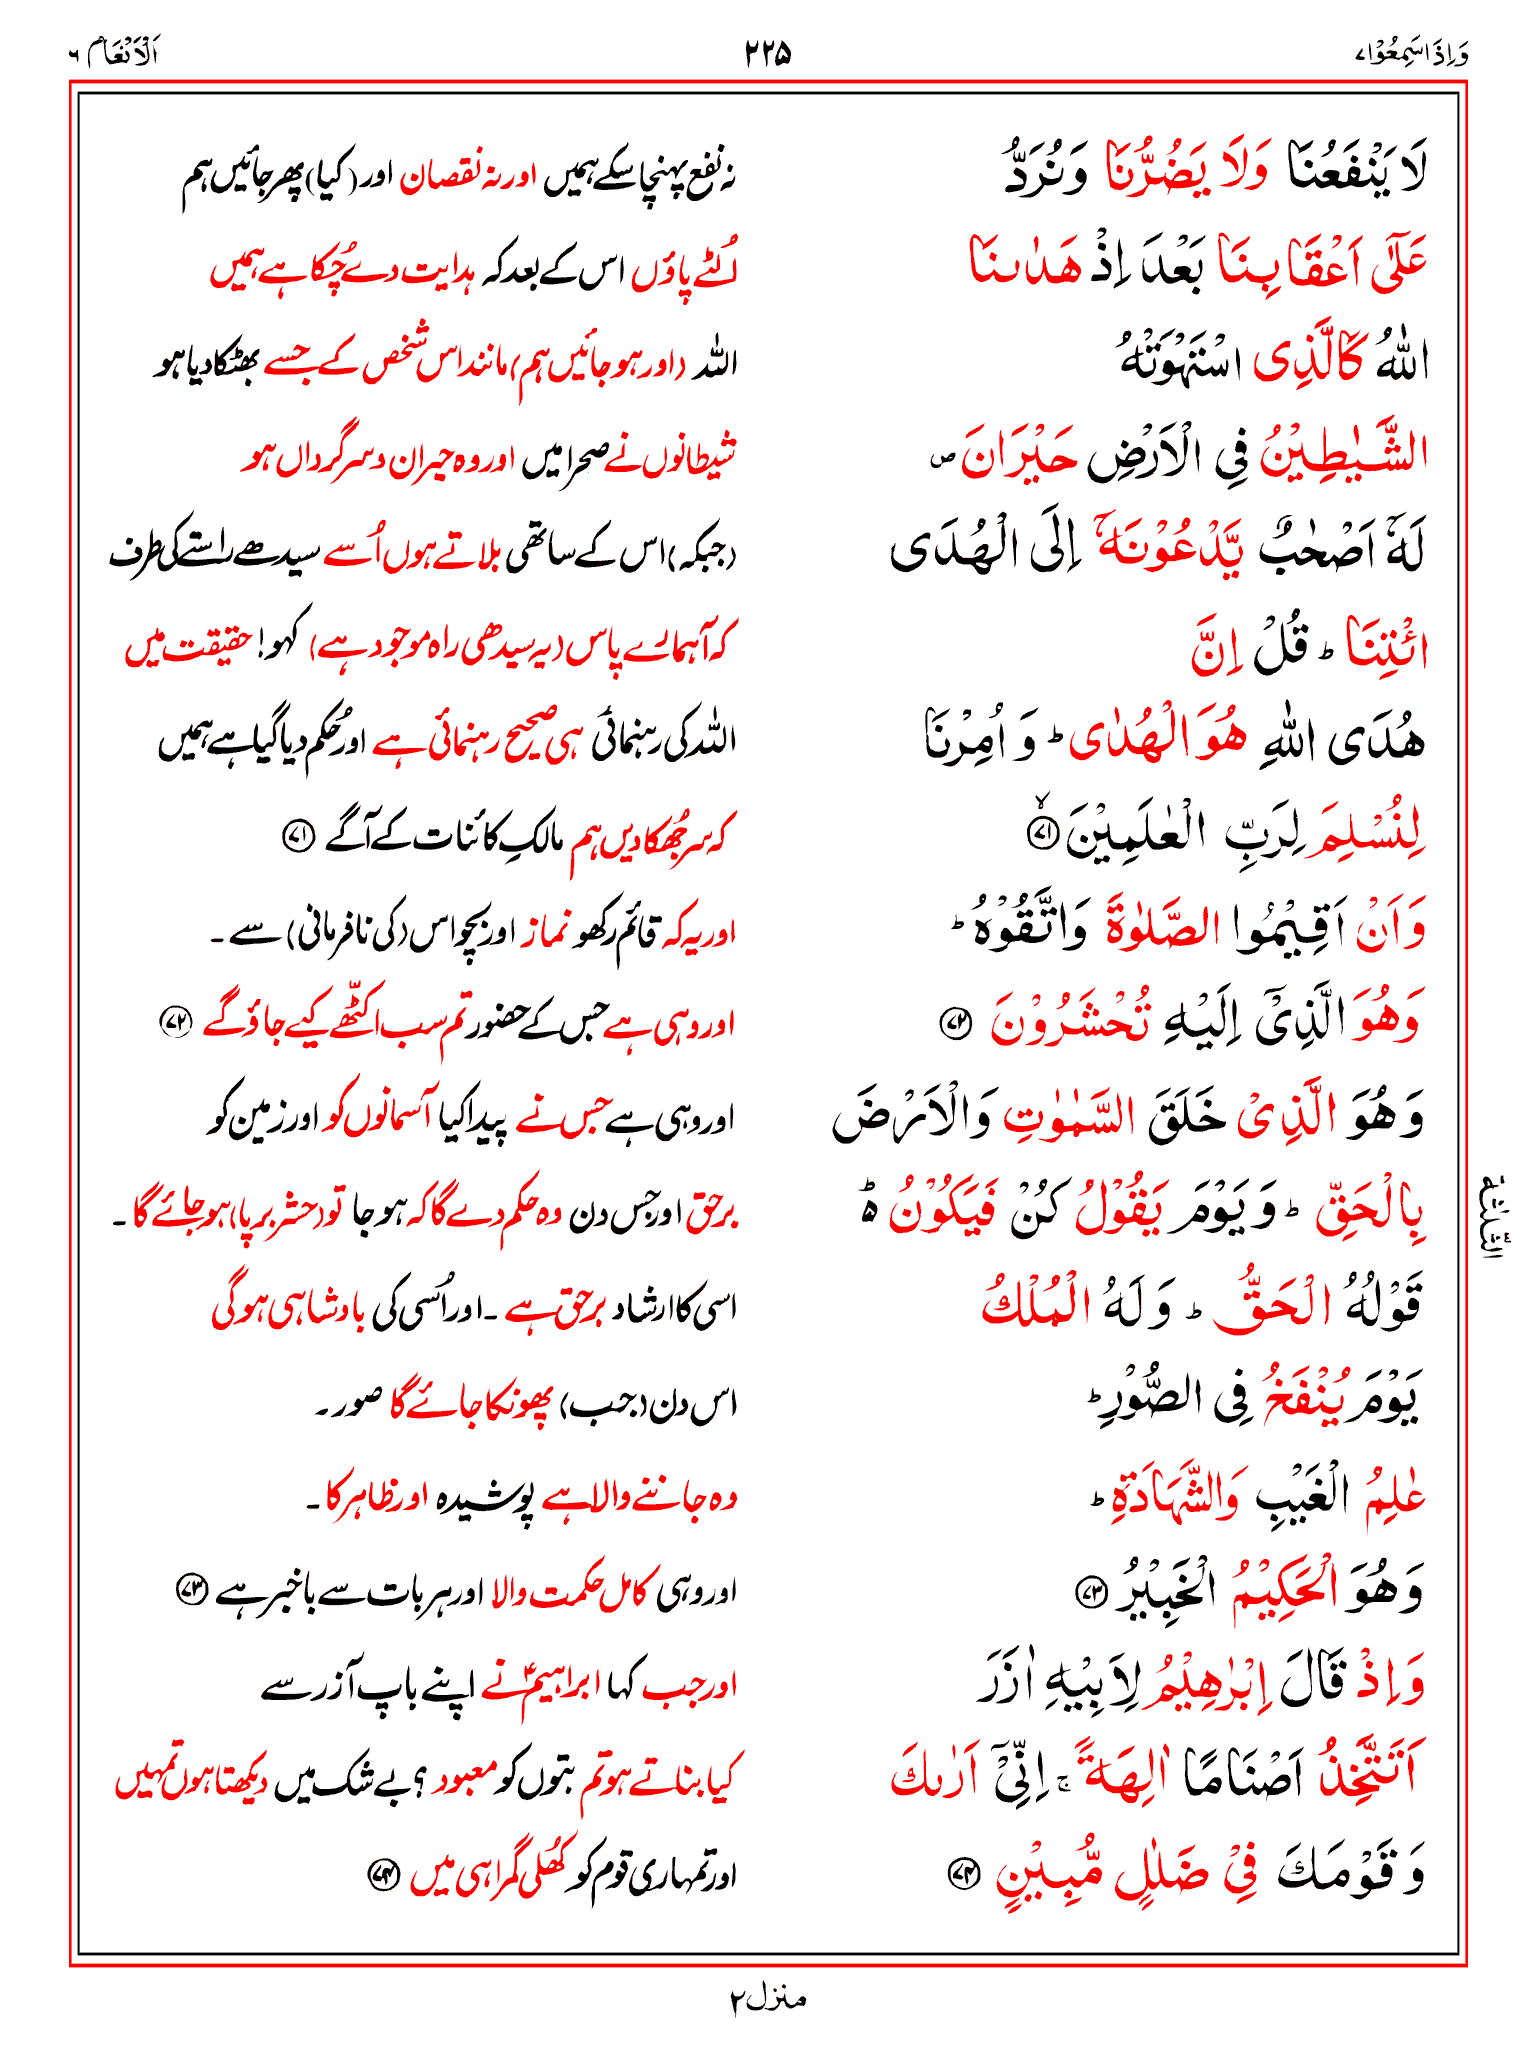 وَاِذَا سَمِعُوْا ۷ ۲۲۵ اَلْاَنْعَام ۶
لَا يَنْفَعُنَا وَلَا يَضُرُّنَا وَنُرَدُّ نہ نفع پہنچا سکے ہمیں اور نہ نقصان اور (کیا) پھر جائیں ہم
عَلٰٓى اَعْقَابِنَا بَعْدَ اِذْ هَدٰىنَا اُلٹے پاؤں اس کے بعد کہ ہدایت دے چُکا ہے ہمیں
اللّٰهُ كَالَّذِى اسْتَهْوَتْهُ اللہ (اور ہو جائیں ہم) مانند اس شخص کے جسے بھٹکا دیا ہو
الشَّيٰطِيْنُ فِى الْاَرْضِ حَيْرَانَ ص شیطانوں نے صحرا میں اور وہ حیران و سرگرداں ہو
لَهٗۤ اَصْحٰبٌ يَّدْعُوْنَهٗۤ اِلَى الْهُدَى (جبکہ) اس کے ساتھی بلاتے ہوں اُسے سیدھے راستے کی طرف
ائْتِنَا ؕ قُلْ اِنَّ کہ آ ہمارے پاس (یہ سیدھی راہ موجود ہے) کہو! حقیقت میں
هُدَى اللّٰهِ هُوَ الْهُدٰى ؕ وَ اُمِرْنَا اللہ کی رہنمائی ہی صحیح رہنمائی ہے اور حُکم دیا گیا ہے ہمیں
لِنُسْلِمَ لِرَبِّ الْعٰلَمِيْنَ ۙ ۷۱ کہ سر جُھکا دیں ہم مالکِ کائنات کے آگے ۷۱
وَاَنْ اَقِيْمُوا الصَّلٰوةَ وَاتَّقُوْهُ ؕ اور یہ کہ قائم رکھو نماز اور بچو اس (کی نافرمانی) سے ۔
وَهُوَ الَّذِىْۤ اِلَيْهِ تُحْشَرُوْنَ ۷۲ اور وہی ہے جس کے حضور تم سب اکٹّھے کیے جاؤ گے ۷۲
وَهُوَ الَّذِىْ خَلَقَ السَّمٰوٰتِ وَالْاَرْضَ اور وہی ہے جس نے پیدا کیا آسمانوں کو اور زمین کو
بِالْحَقِّ ؕ وَيَوْمَ يَقُوْلُ كُنْ فَيَكُوْنُ ۵ؕ برحق اور جس دن وہ حکم دے گا کہ ہو جا تو (حشر برپا) ہو جائے گا ۔
قَوْلُهُ الْحَقُّ ؕ وَلَهُ الْمُلْكُ اسی کا ارشاد برحق ہے ۔ اور اُسی کی بادشاہی ہو گی
يَوْمَ يُنْفَخُ فِى الصُّوْرِ ؕ اس دن (جب) پھونکا جائے گا صور ۔
عٰلِمُ الْغَيْبِ وَالشَّهَادَةِ ؕ وہ جاننے والا ہے پوشیدہ اور ظاہر کا ۔
وَهُوَ الْحَكِيْمُ الْخَبِيْرُ ۷۳ اور وہی کامل حکمت والا اور ہر بات سے باخبر ہے ۷۳
وَاِذْ قَالَ اِبْرٰهِيْمُ لِاَبِيْهِ اٰزَرَ اور جب کہا ابراہیمؑ نے اپنے باپ آزر سے
اَتَتَّخِذُ اَصْنَامًا اٰلِهَةً ۚ اِنِّىْۤ اَرٰىكَ کیا بناتے ہو تم بتوں کو معبود ؟ بے شک میں دیکھتا ہوں تمہیں
وَقَوْمَكَ فِىْ ضَلٰلٍ مُّبِيْنٍ ۷۴ اور تمہاری قوم کو کُھلی گمراہی میں ۷۴
الثلٰثة
منزل ۲